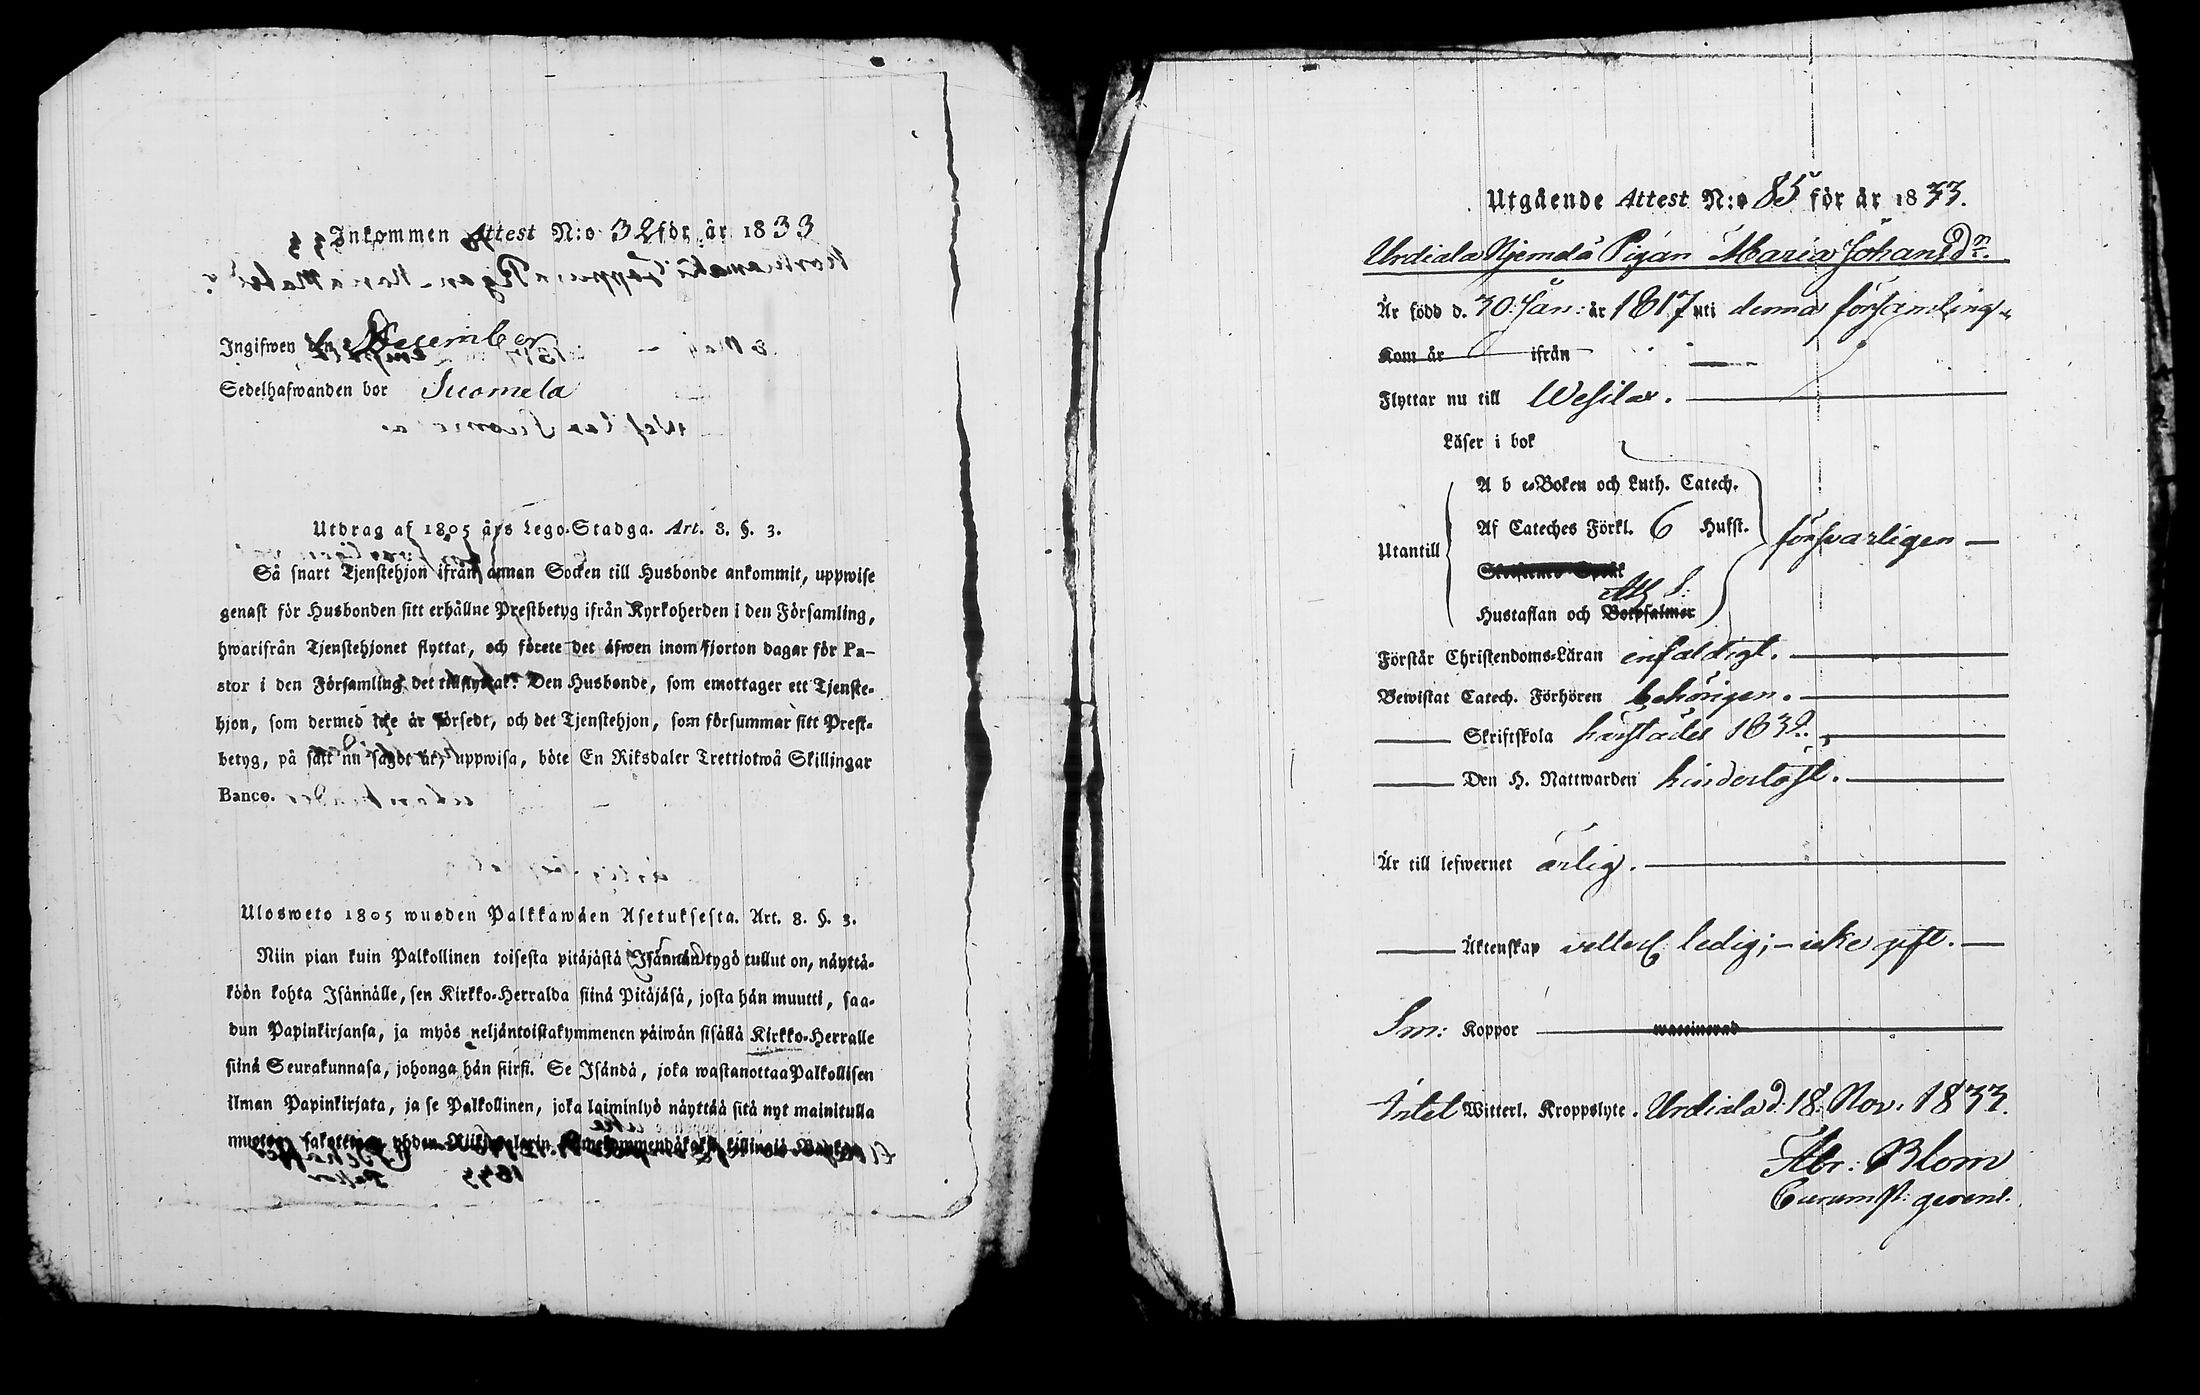 Inkommen Attest N:o 32 för år 1833
Ingifwen den December
Sedelhafwanden bor Suomela
Utdrag af 1805 års Lego-Stadga. Art. 8. §. 3.
Så snart Tjenstehjon ifrån annan Socken till Husbonde ankommit, uppwise
genast för Husbonden sitt erhållne Prestbetyg ifrån Kyrkoherden i den Församling,
hwarifrån Tjenstehjonet flyttat, och förete det äfwen inom fjorton dagar för Pa-
stor i den Församling det tillflyttat. Den Husbonde, som emottager ett Tjenste-
hjon, som dermed icke är försedt, och det Tjenstehjon, som försummar sitt Prest-
betyg, på sätt nu sagdt är, uppwisa, böte En Riksdaler Trettiotwå Skillingar
Banco.
Ulosweto 1805 wuoden Palkkawäen Asetuksesta. Art. 8. §. 3.
Niin pian kuin Palkollinen toisesta pitäjästä Isännän tygö tullut on, näyttä-
köön kohta Isännälle, sen Kirkko-Herralda siinä Pitäjäsä, josta hän muutti, saa-
dun Papinkirjansa, ja myös neljäntoistakymmenen päiwän sisällä Kirkko-Herralle
siinä Seurakunnasa, johonga hän siirsi. Se Isändä, joka wastanottaa Palkollisen
ilman Papinkirjata, ja se Palkollinen, joka laiminlyö näyttää sitä nyt mainitulla
Utgående Attest N:o 85 för år 1833.
Urdiala Njemdä Pigan Maria Johansdr.
Är född d. 30. Jan: år 1817 uti denna församling.
Kom år ifrån
Flyttar nu till Wesilax.
Läser i bok
A b c-Boken och Luth. Catech.
Af Cateches Förkl. 6 Hufst.
Utantill försvarligen
Hustaflan och Ath. S: Botpsalmer
Förstår Christendoms-Läran enfaldigt.
Bewistat Catech. Förhören behörigen.
Skriftskola härstädes 1832.
Den H. Nattwarden hinderlöst.
Är till lefwernet ärlig.
Äktenskap ledig; - icke gift.
Sm: Koppor waccinerad
Intet Witterl. Kroppslyte. Urdiala d. 18. Nov. 1833.
Abr: Blom